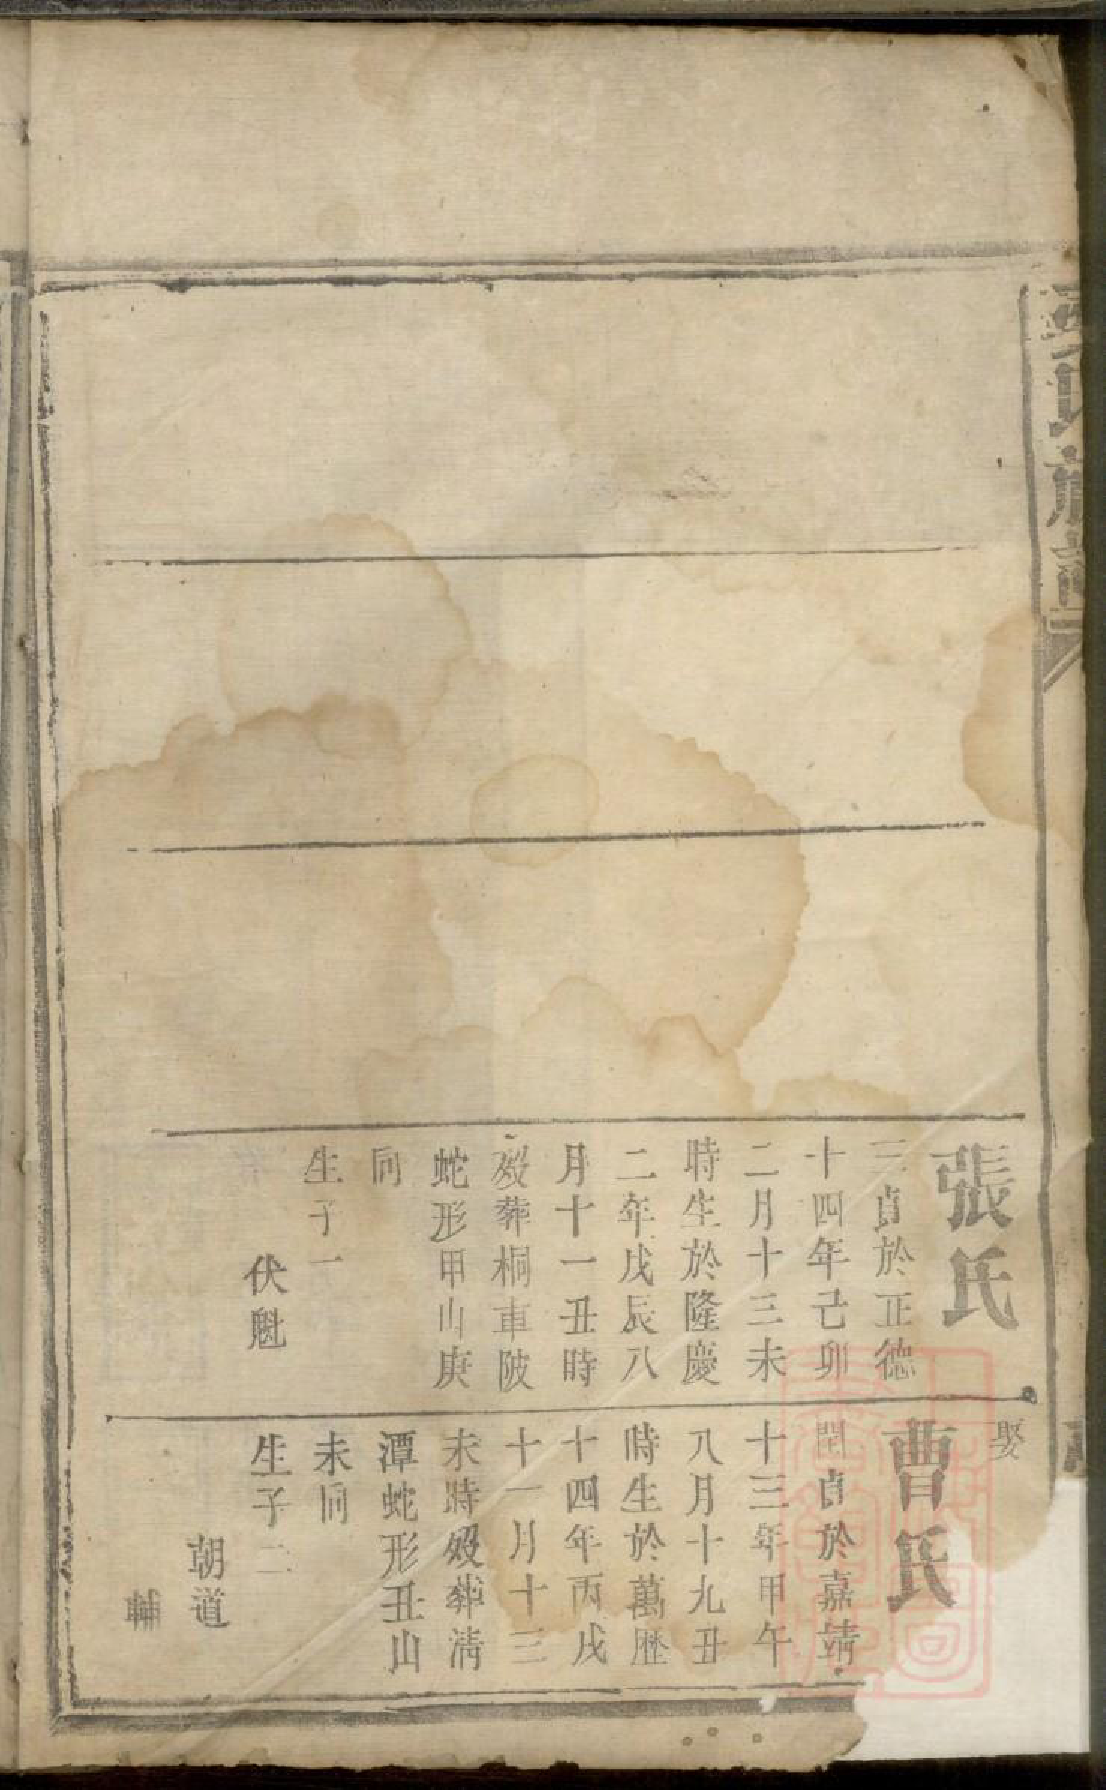 張氏
三貞於正德
十四年己卯
二月十三未
時生於隆慶
二年戊辰八
月十一丑時
歿葬桐車陂
蛇形甲山庚
向
生子一
伏魁
娶
曹氏
貞於嘉靖
十三年甲午
八月十九丑
時生於萬歷
十四年丙戌
十一月十三
未時歿葬清
潭蛇形丑山
未向
生子二
朝道
輔